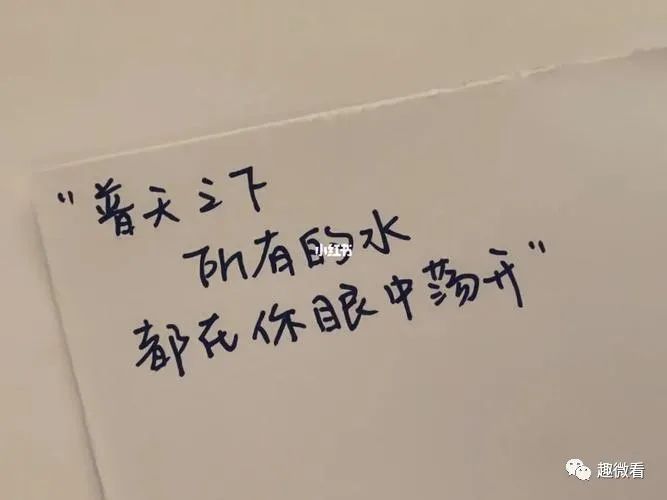 “普天之下
所有的水
小红书
都在你眼中荡开”
趣微看